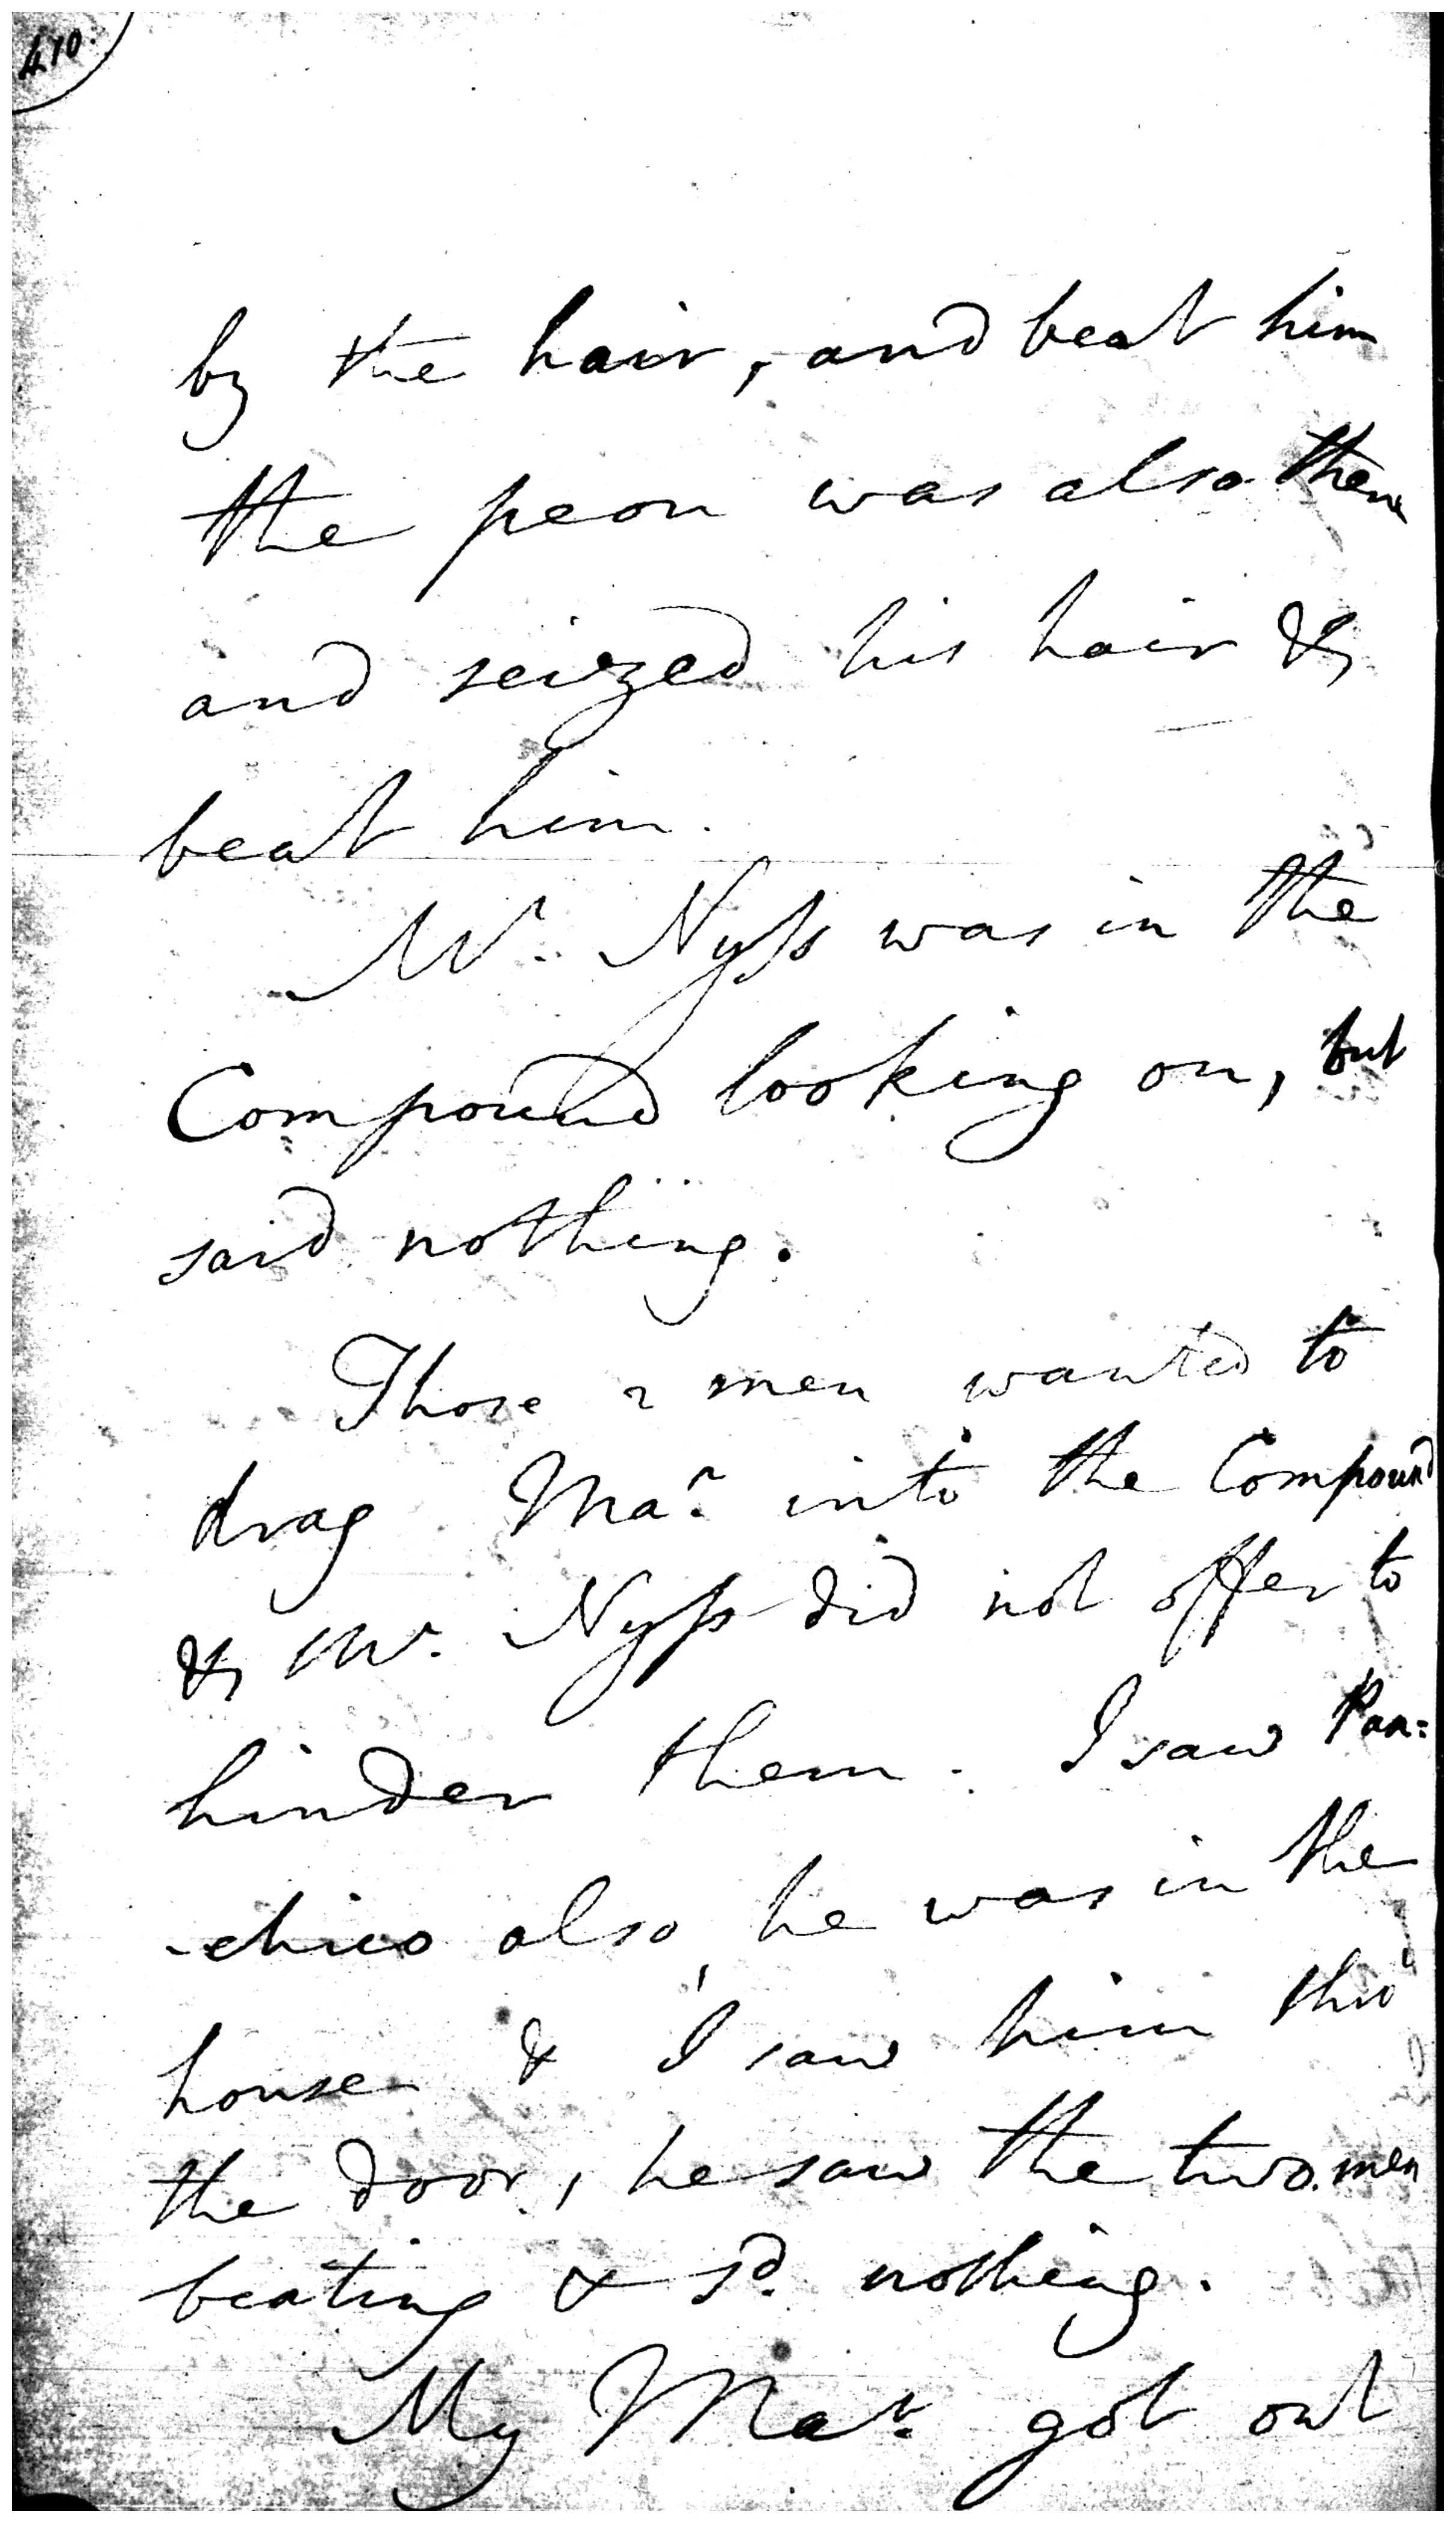 410.
by the hair, and beat him
the peon was also there
and seized his hair &
beat him.
Mr. Nyss was in the
Compound looking on, but
said nothing.
Those 2 men wanted to
drag Mar. into the Compound
& Mr. Nyss did not offer to
hinder them. I saw Pan=
-chico also, he was in the
house & I saw him thro'
the door, he saw the two men
beating & sd. nothing.
My Mar. got out